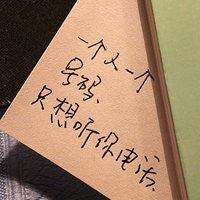 一个又一个
号码、
只想听你电话、